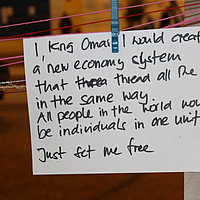 I, King Omar I would creat
a new economy system
that thread all the
in the same way
All people in the world wou
be individuals in one unit
Just set me free